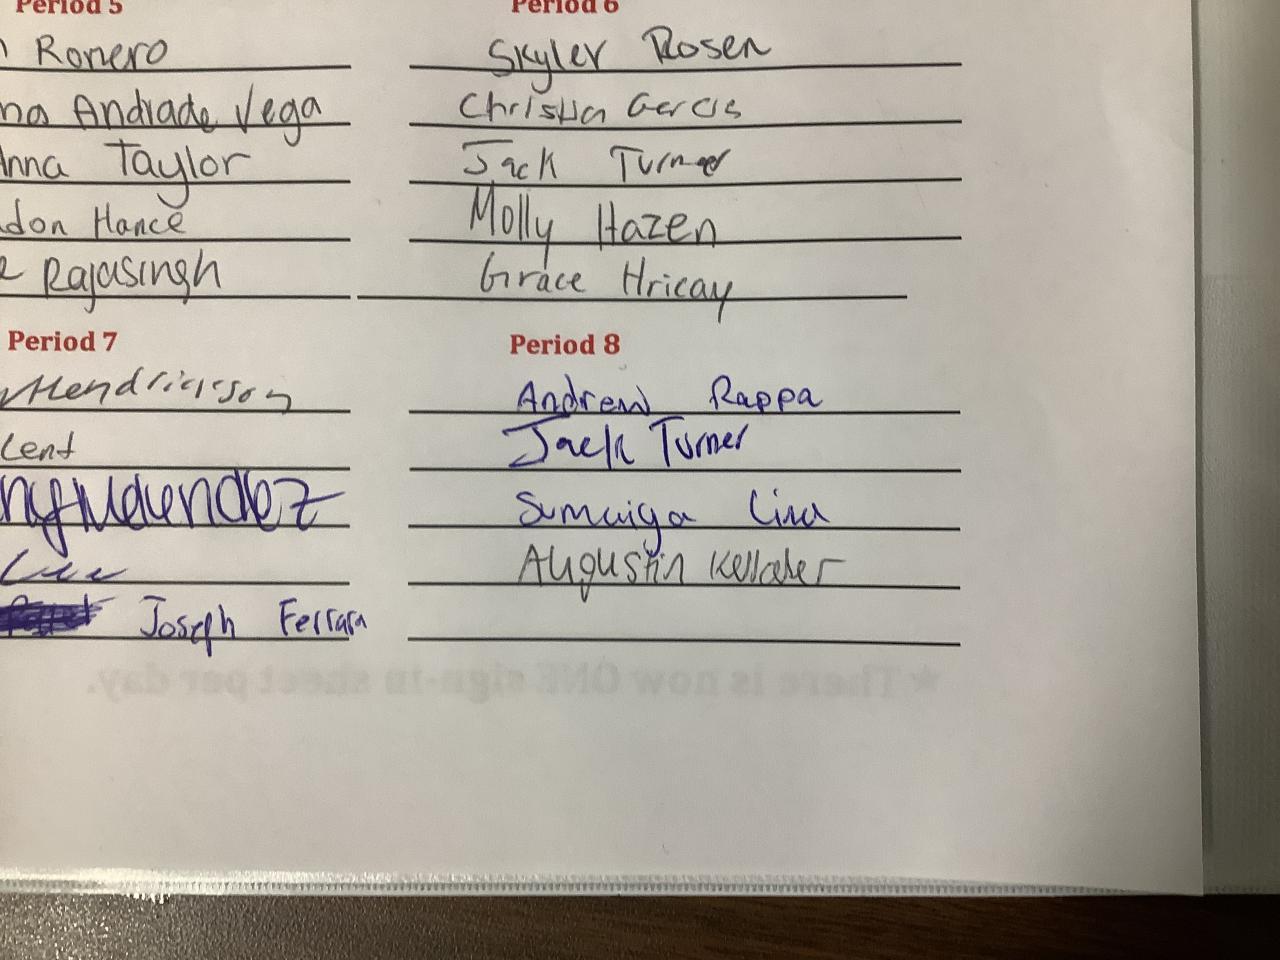 Period 5
Romero
Andrade Vega
Anna Taylor
don Hance
Rajasingh
Period 6
Skyler Rosen
Christian Garcia
Jack Turner
Molly Hazen
Grace Hricay
Period 7
Hendrickson
cent
Lee
Joseph Ferrara
Period 8
Andrew Rappa
Jack Turner
Sumaiya
Augustin Kelleher
★ There is now ONE sign-in sheet per day.